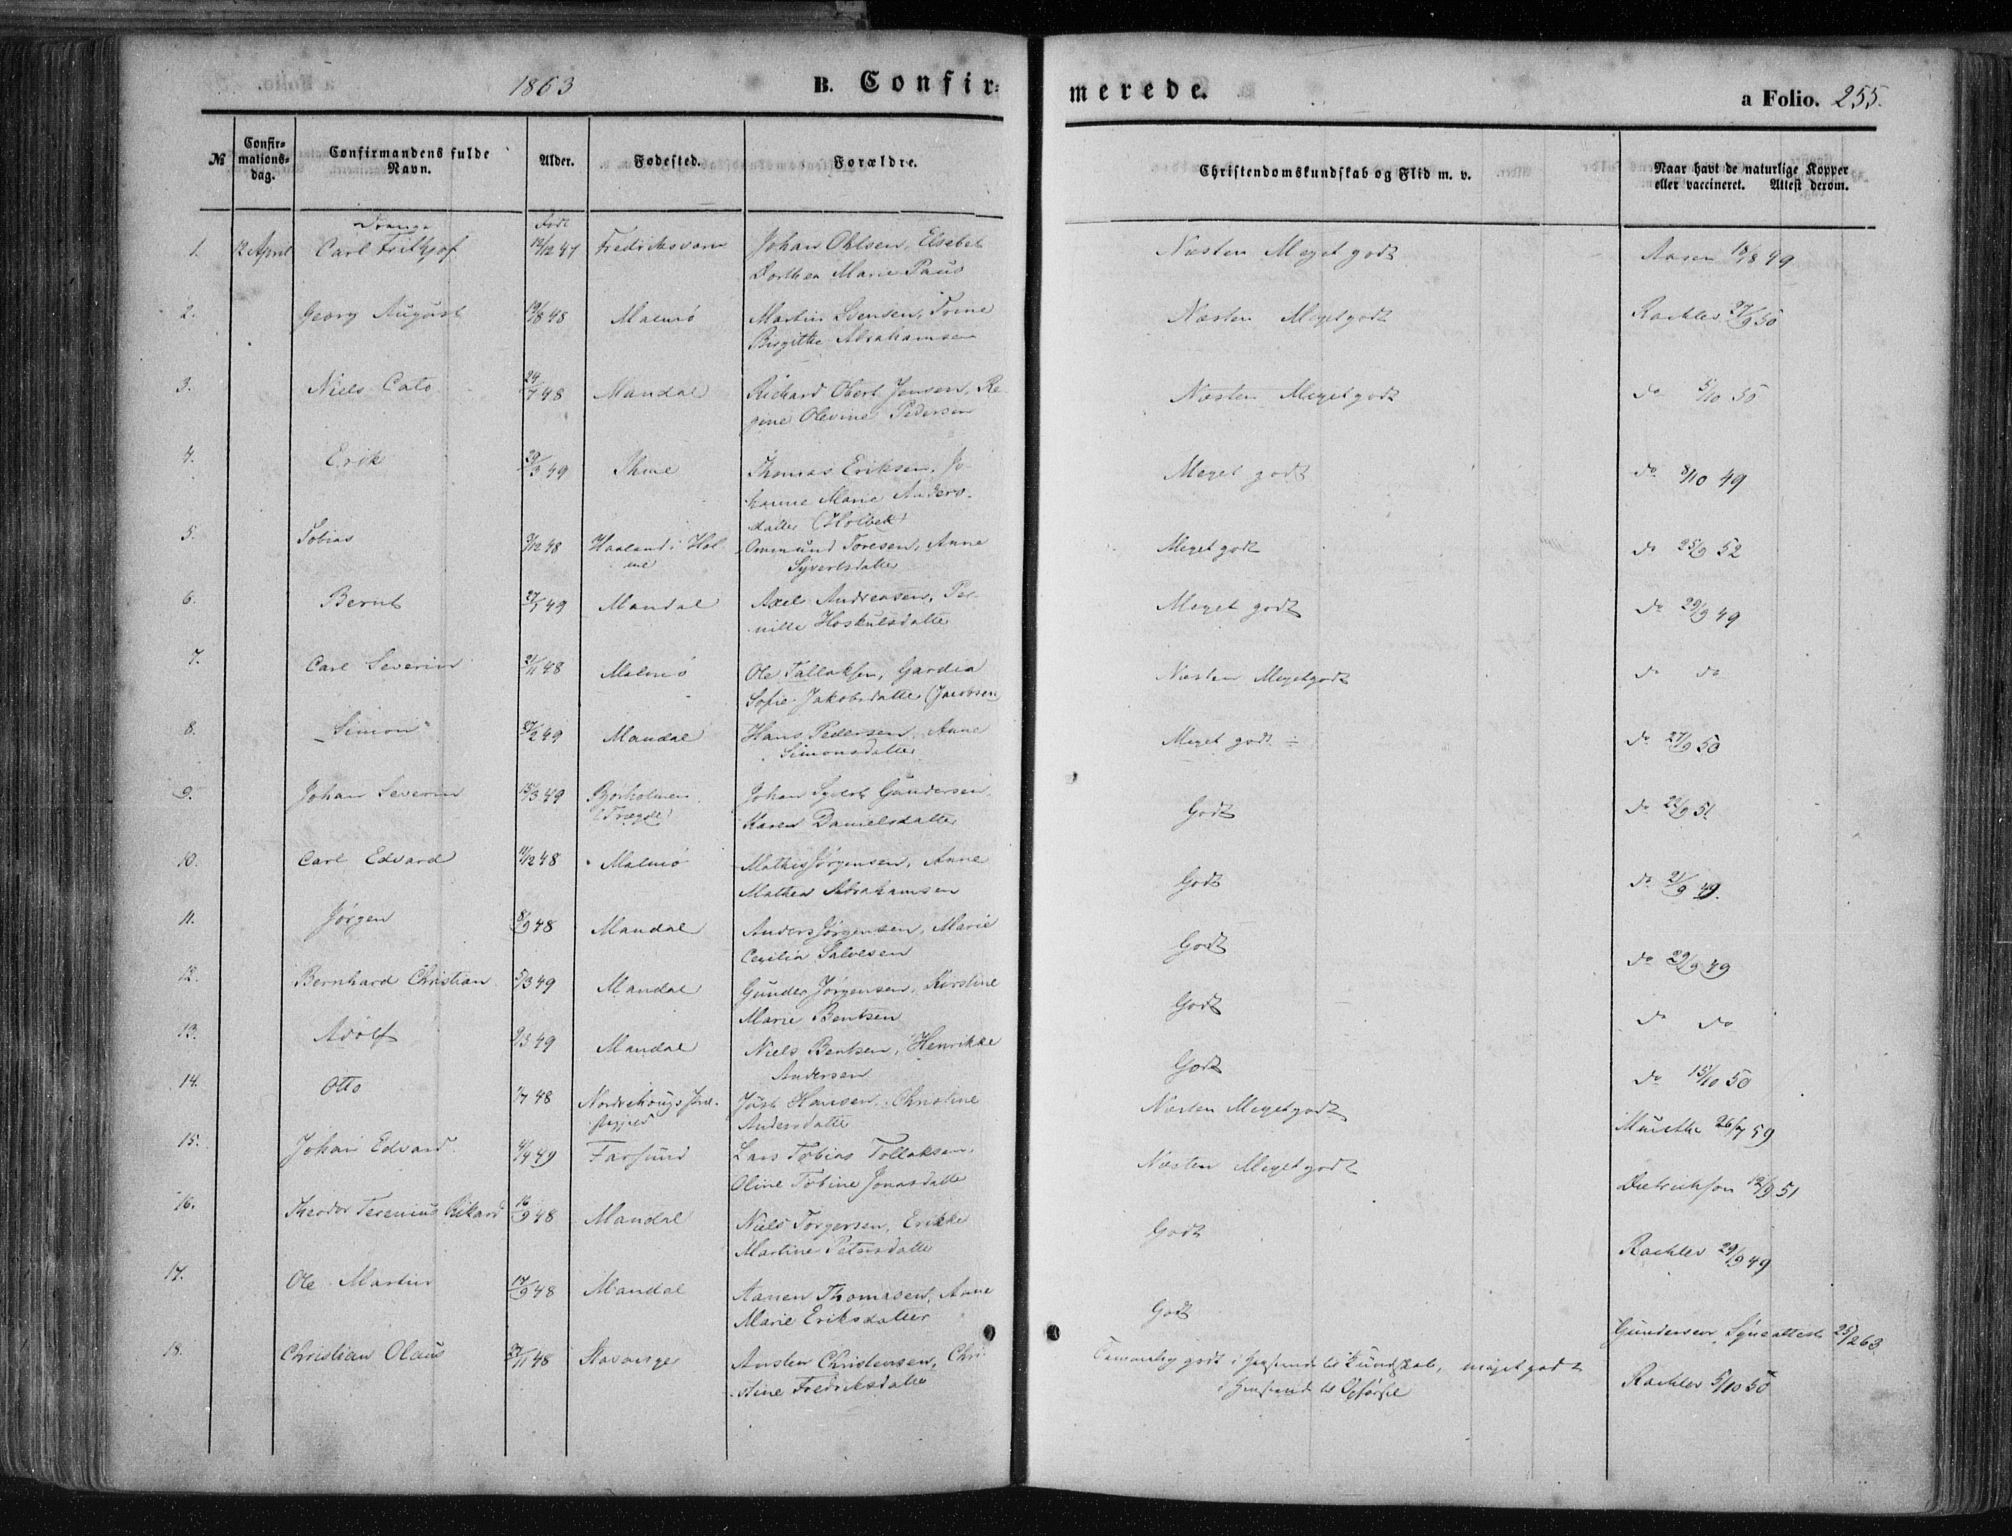 1863 B. Confir= merede. a Folio. 255.
№ Confir-mations-dag. Confirmandens fulde Navn. Alder. Fødested. Forældre. Christendomskundskab og Flid m. v. Naar havt de naturlige Kopper eller vaccineret. Attest derom.
Drange Født
1. 12 April Carl Frithjof 12/12 47 Fredriksværn Johan Ohlsen, Elsebet Næsten Meget godt Aasen 18/8 49
Dorthea Marie Paus
2. Georg August 19/8 48 Malmø Martin Svensen, Trine Næsten Meget godt Rachlev 27/9 50
Birgitte Abrahamsen
3. Niels Cato 24/7 48 Mandal Richard Obert Jensen, Re- Næsten Meget godt do 5/10 50
gine Olevine Pedersen
4. Erik 29/3 49 Ihme Thomas Eriksen, Jo Meget godt do 8/10 49
hanne Marie Anders-
datter (Holbek)
5. Tobias 9/12 48 Haaland i Hol Ommund Toresen, Anne Meget godt do 25/9 52
me Syvertsdatter
6. Bernt 27/5 49 Mandal Axel Andreasen, Per- Meget godt do 29/9 49
nille Hoskulsdatter
7. Carl Severin 21/11 48 Malmø Ole Tallaksen, Gardea Næsten Meget godt do do
Sofie Jakobsdatter (Jacobsen)
8. Simon 27/2 49 Mandal Hans Pedersen, Anne Meget godt ÷ do 27/9 50
Simonsdatter
9. Johan Severin 15/3 49 Johan Syvert Gundersen Godt do 22/9 51
(Trægde) Karen Danielsdatter
10. Carl Edvard 11/12 48 Malmø Mathis Jørgensen, Anne Godt do 2/9 49.
Mathea Abrahamsen
11. Jørgen 8/9 48 Mandal Anders Jørgensen, Marie Godt do 29/9 49
Cecilia Salvesen
12. Bernhard Christian 5/3 49 Mandal Gunder Jørgensen, Kirstine Godt do do
Marie Bentsen
13. Adolf 9/3 49 Mandal Niels Bentsen, Henrikke Godt do 15/10 50
Andersen
14. Otto 1/7 48 Just Hansen, Christine Næsten Meget godt Munthe 26/7 59
Andersdatter
15. Johan Edvard 4/4 49 Farsund Lars Tobias Tollaksen, Næsten Meget godt Dietrichson 12/9 51
Oline Tobine Jonasdatte
16. Theodor Terenius Rikard 16/9 48 Mandal Niels Torgersen, Erikke Godt Rachlev 29/9 49
Martine Petersdatte
17. Ole Martin 17/9 48 Mandal Aanen Thomasen, Anne Godt Gundersen Synsattest 25/2 63
Marie Eriksdatter
18. Christian Olaus 27/11 48 Stavanger Austen Christensen, Chri- Temmelig godt i Henseende til Kundskab, meget godt Rachlev 5/10 50
stine Fredriksdatte i Henseende til Opførsel